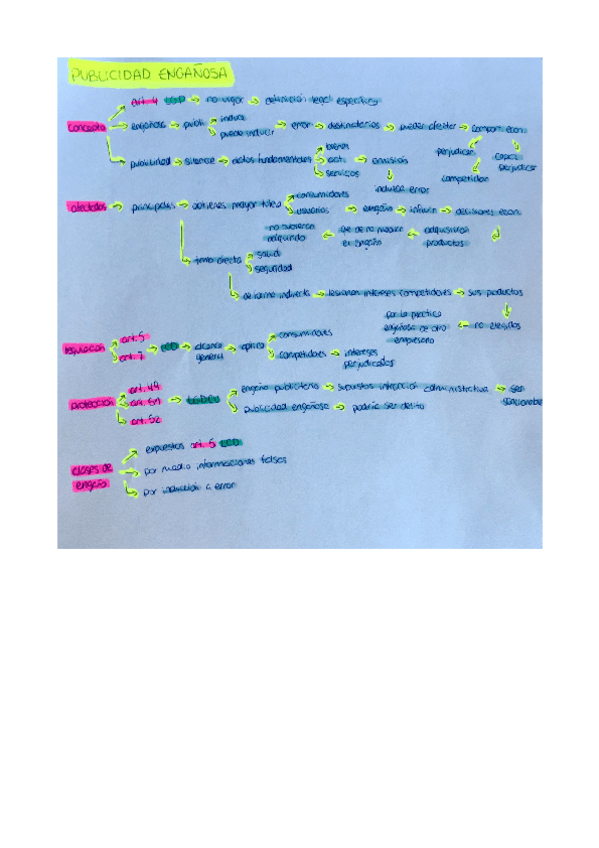 PUBLICIDAD ENGAÑOSA
concepto → art. 4 LGP → no vigor → definición legal específica
engañosa → publi → induce
puede inducir → error → destinatarios → pueden afectar → comport. econ.
perjudicar competidor
capaz perjudicar
publicidad → silencie → datos fundamentales → bienes
act. → omisión
servicios
inducir error
afectados → principales → obtienen mayor tutela → consumidores
usuarios → engaño → influir → decisiones econ.
adquisición productos
que de no mediar el engaño
no hubieran adquirido
tmb afecta → salud
seguridad
de forma indirecta → lesionan intereses competidores → sus productos
no elegidos
por la práctica engañosa de otro empresario
regulación → art. 5
art. 7 → LCD → alcance general → aplica → consumidores
competidores → intereses perjudicados
protección → art. 49
art. 52
engaño publicitario → supuestos infracción administrativa → ser
publicidad engañosa → podría ser delito
clases de engaño → expuestos art. 5 LCD
por medio informaciones falsas
por inducción a error